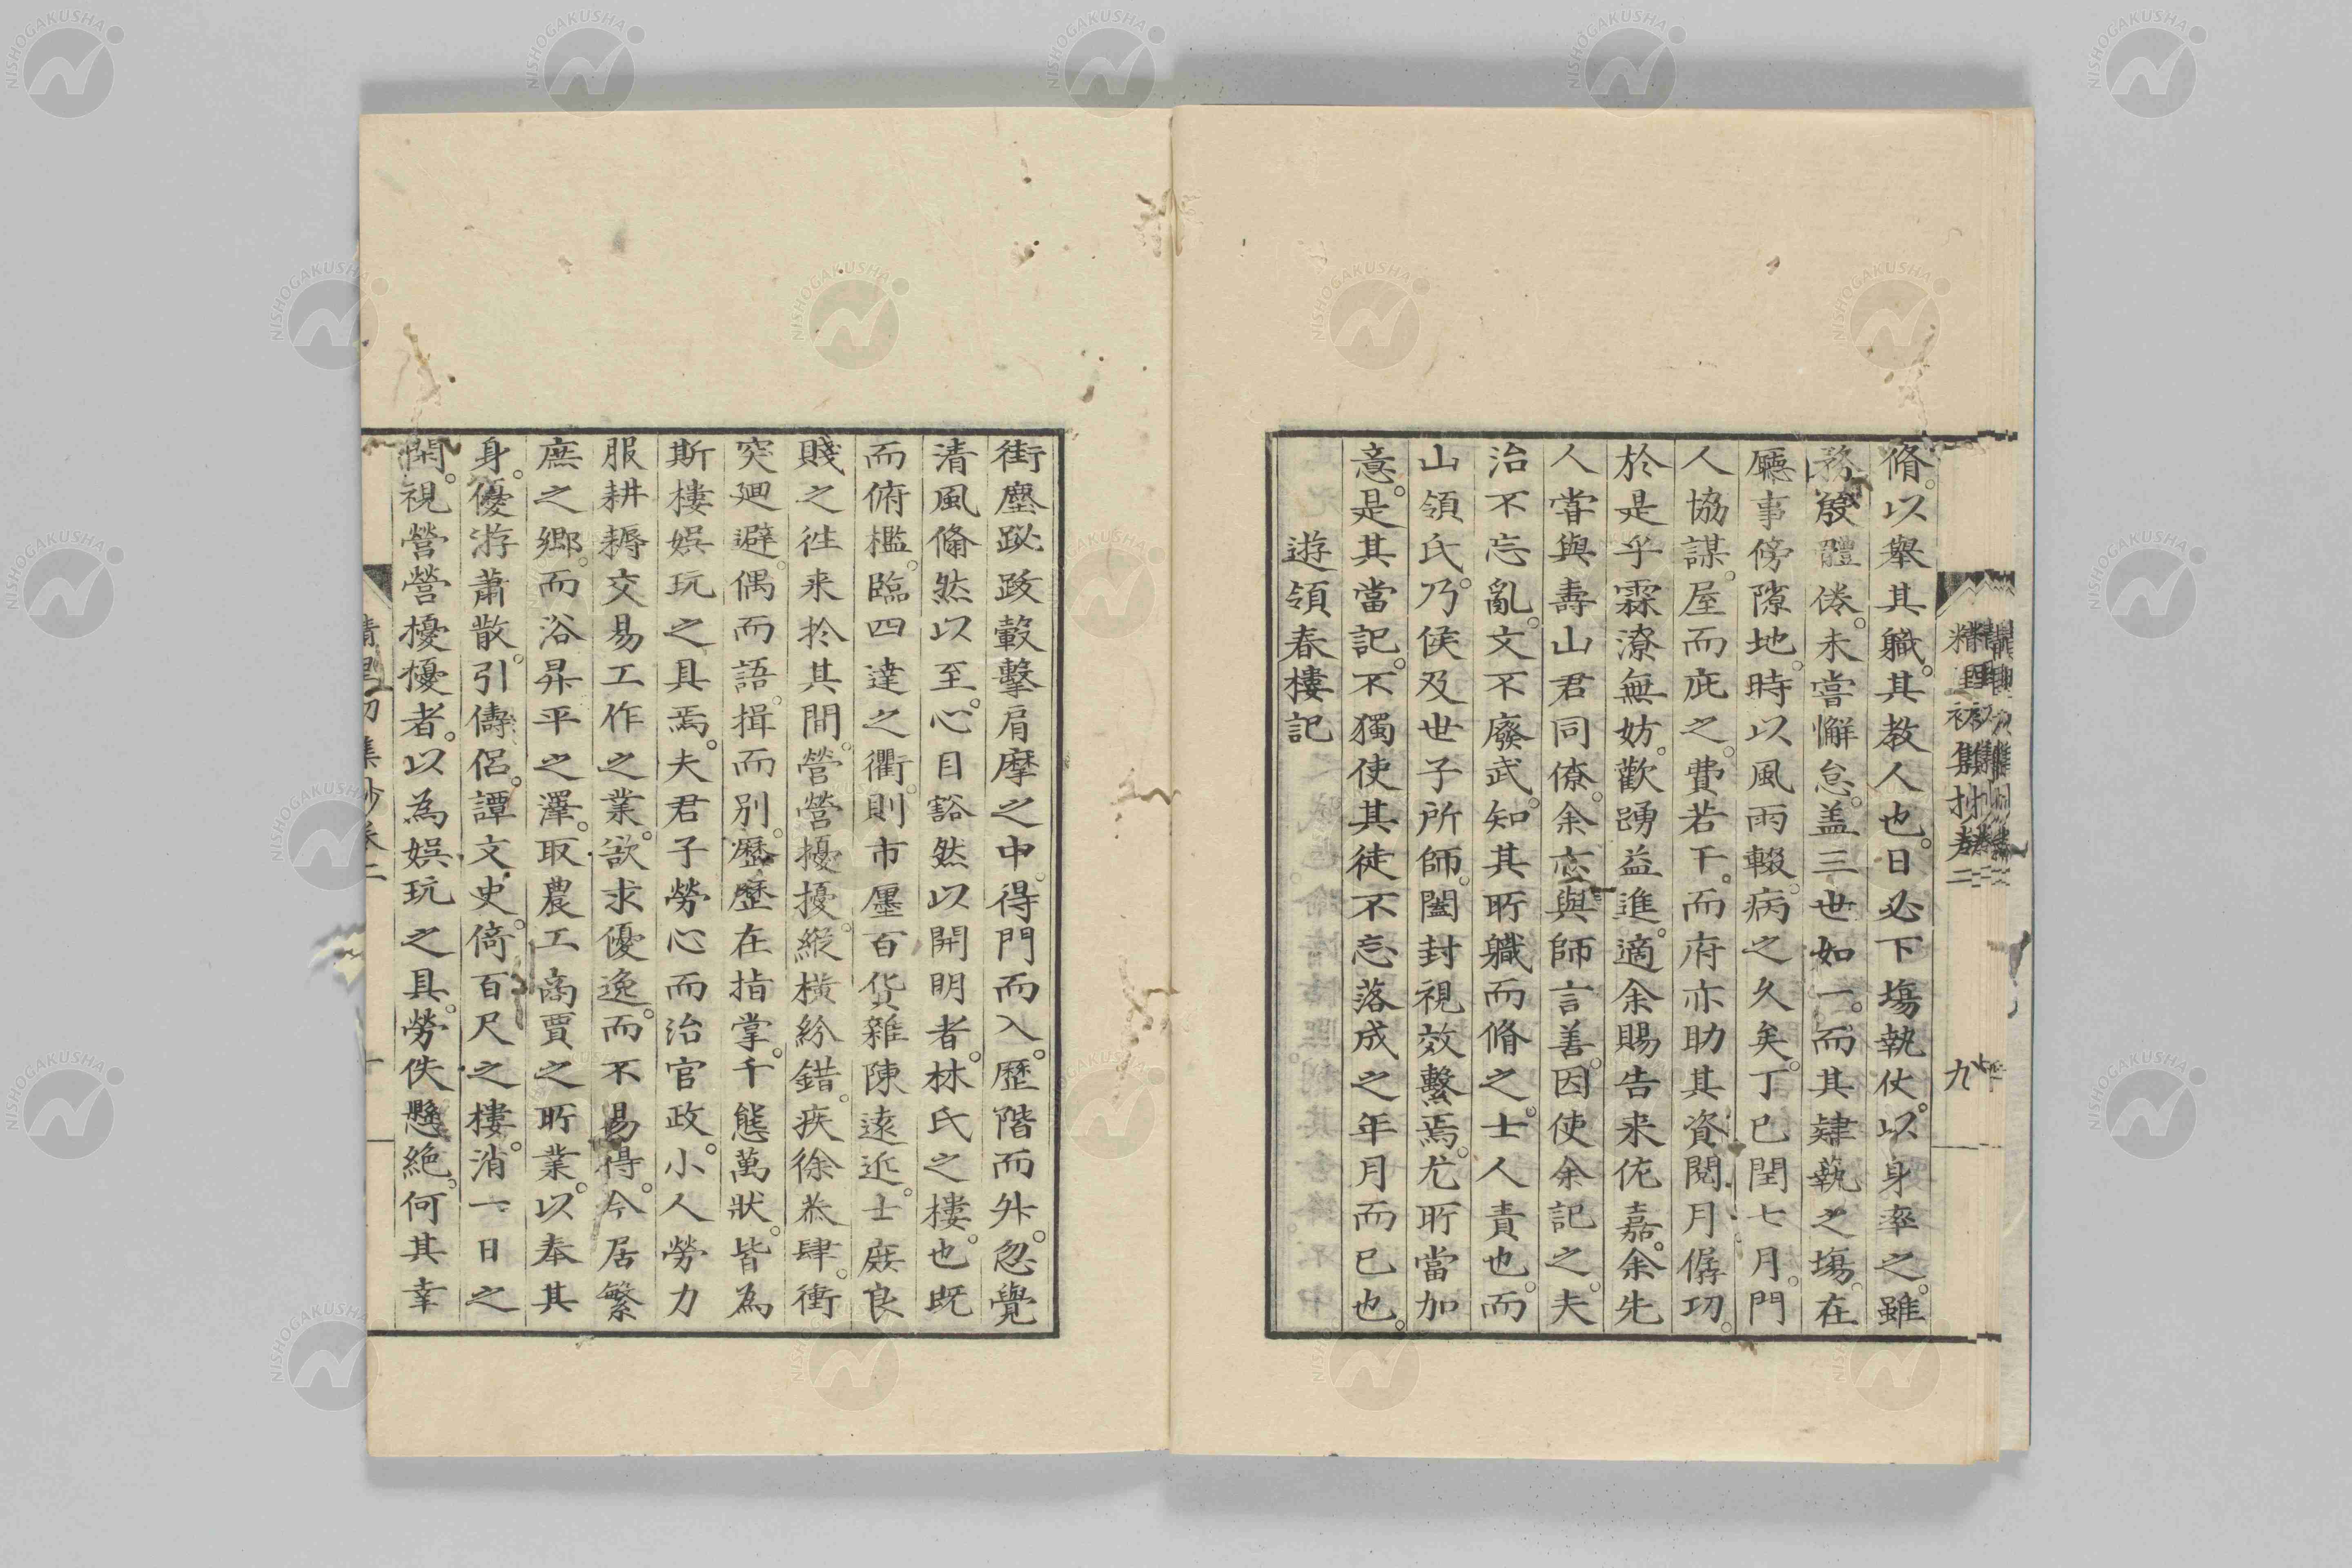 脩。以舉其職。其教人也。日必下塲執仗。以身率之。雖
務殷體倦。未嘗懈怠。盖三世如一。而其肄藝之塲。在
廳事傍隙地。時以風雨輟。病之久矣。丁巳閏七月。門
人協謀。屋而庇之。費若干。而府亦助其資。閱月僝功。
於是乎霖潦無妨。歡踴益進。適余賜告来佐嘉。余先
人甞與壽山君同僚。余亦與師言善。因使余記之。夫
治不忘亂。文不廢武。知其所職而脩之。士人責也。而
山領氏。乃侯及世子所師。闔封視效繫焉。尤所當加
意。是其當記。不獨使其徒不忘落成之年月而已也。
遊領春樓記
精里初集抄卷二
九
街塵跋跂轂擊肩摩之中。得門而入。歷階而升。忽覺
清風翛然以至。心目豁然以開明者。林氏之樓也。既
而俯檻。臨四達之衢。則市廛百貨雜陳遠近。士庶良
賤之徃来於其間。營營擾擾。縱橫紛錯。疾徐恭肆。衝
突廻避。偶而語。揖而別。歷歷在指掌。千態萬狀。皆為
斯樓娯玩之具焉。夫君子勞心而治官政。小人勞力
服耕耨交易工作之業。欲求優逸。而不易得。今居繁
庶之鄉。而浴昇平之澤。取農工商賈之所業。以奉其
身。優游蕭散。引儔侶。譚文史。倚百尺之樓。消一日之
閑。視營營擾擾者。以為娯玩之具。勞佚懸絶。何其幸
精里初集抄卷二
十